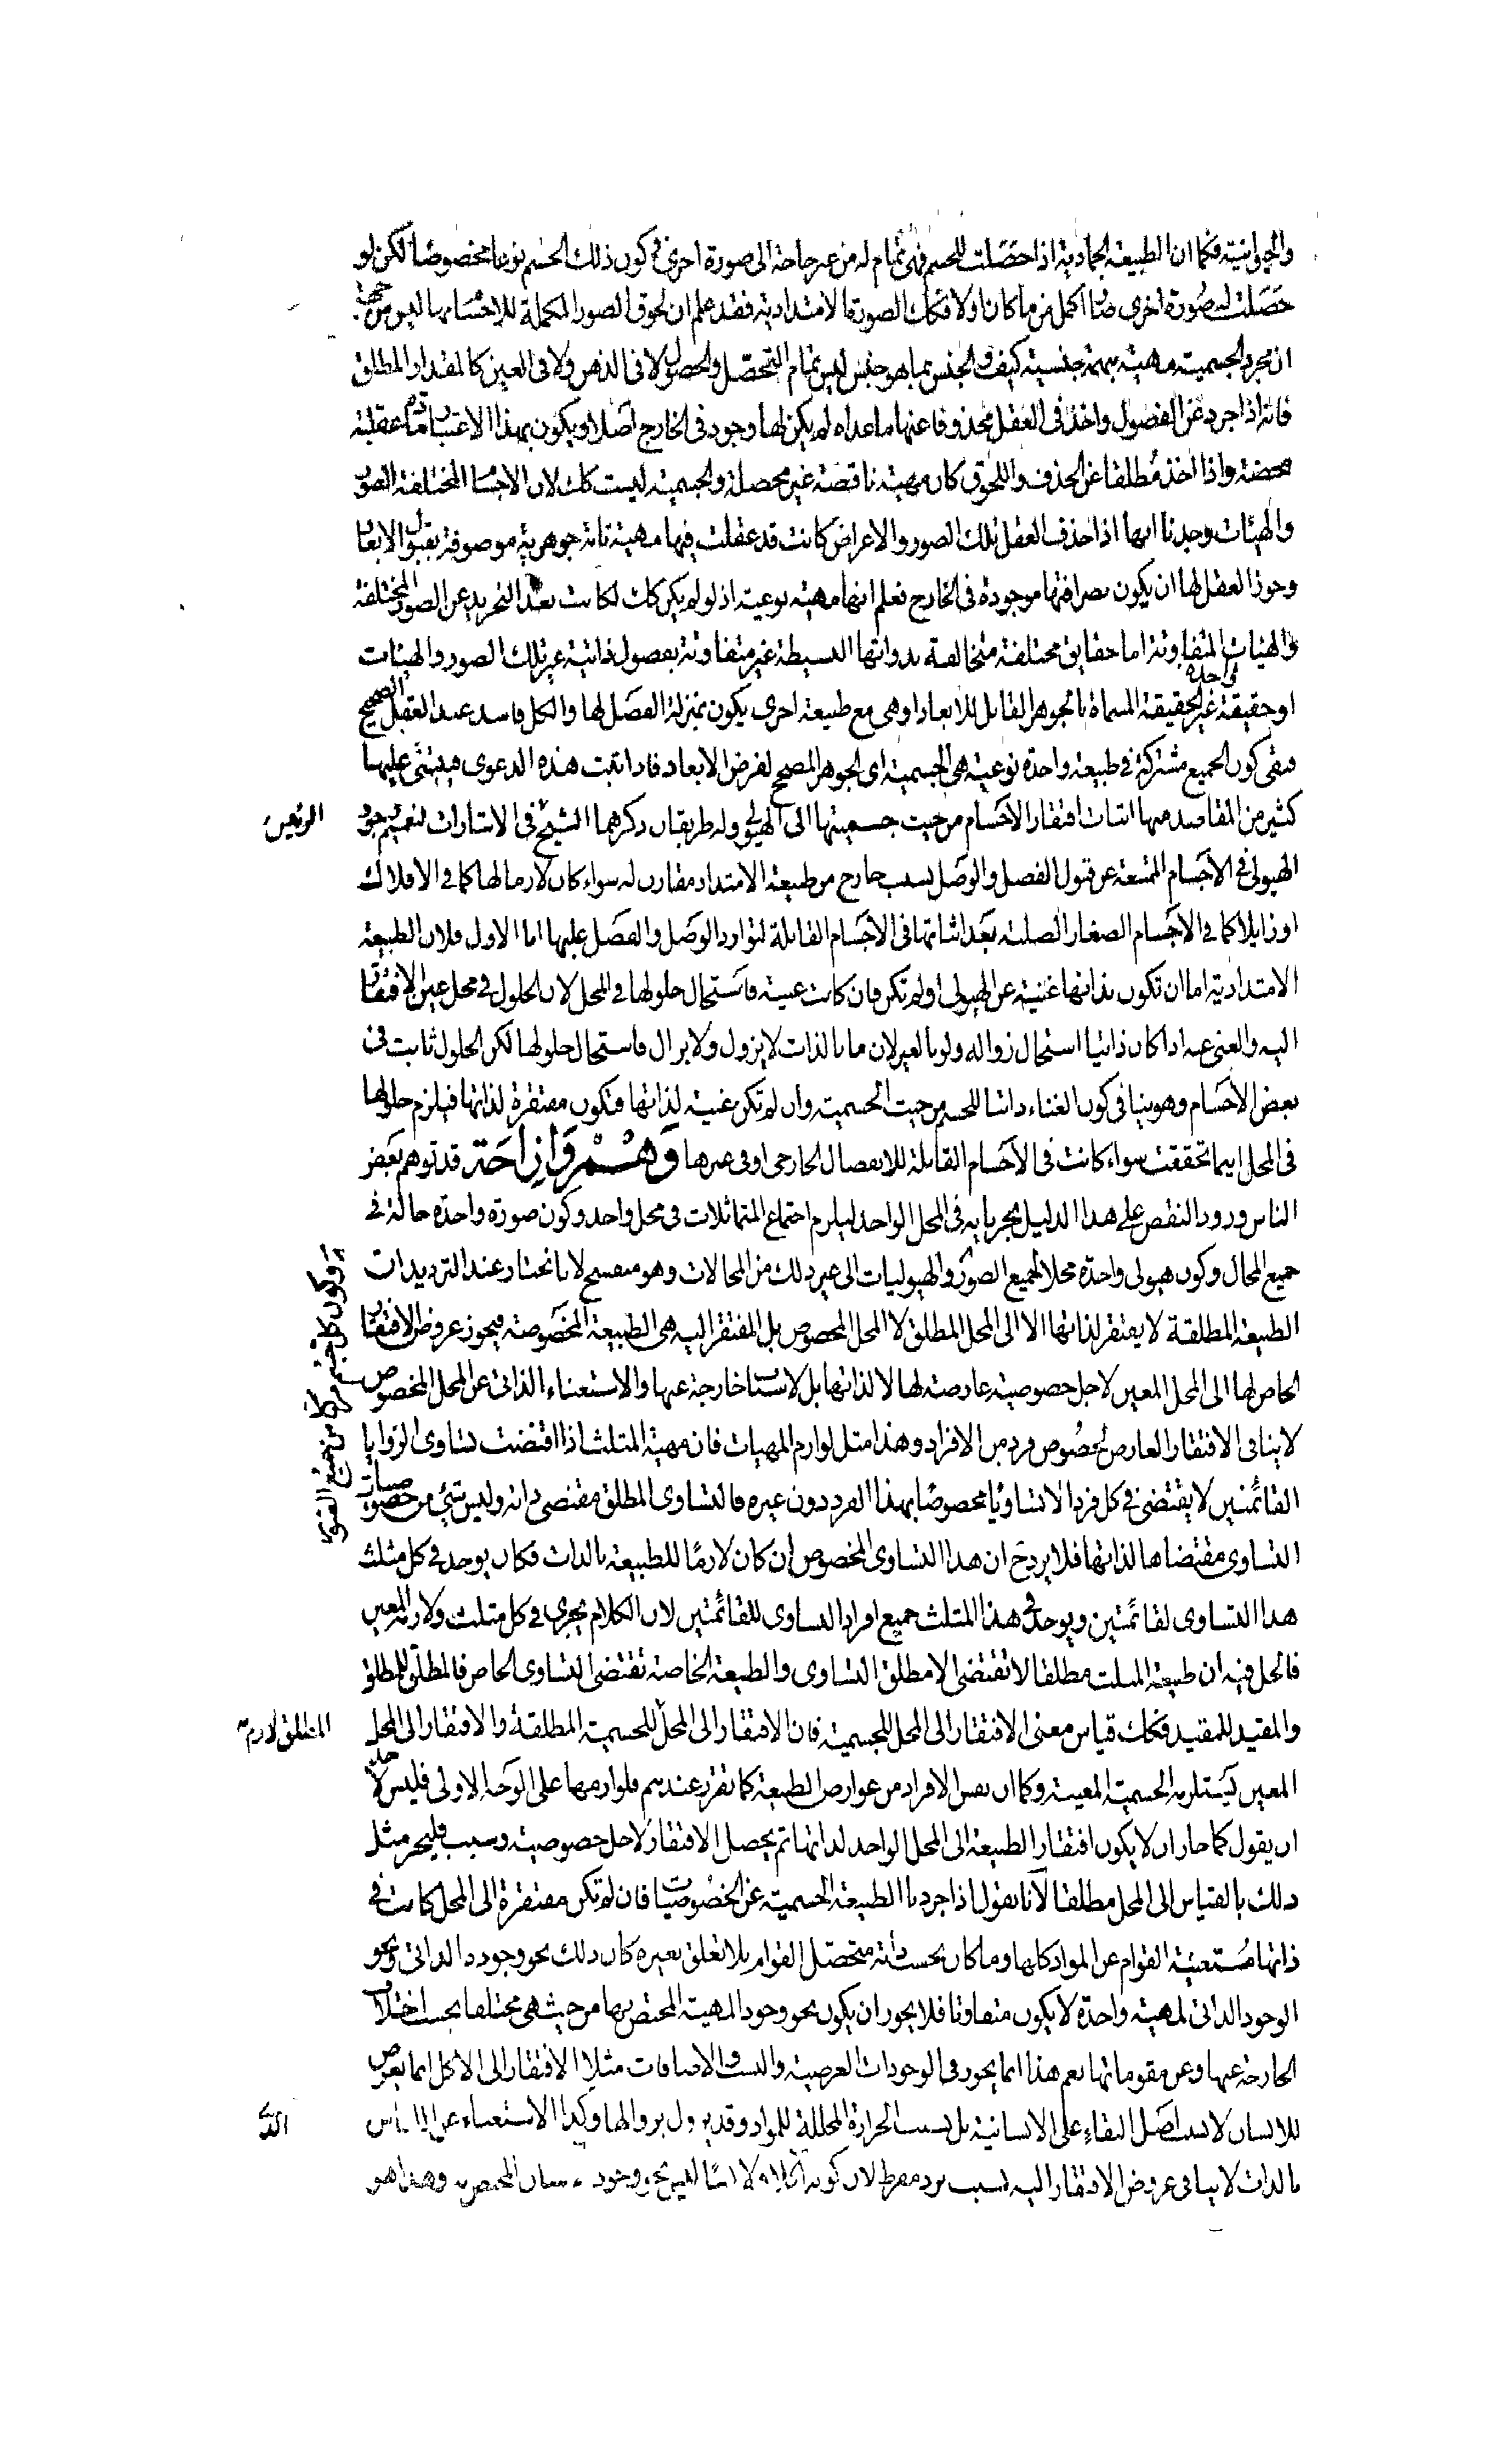 والحيوانية فكما ان الطبيعة الجمادية اذا حصلت للجسم فهى تمام له من غير حاجة الى صورة اخرى فى كون ذلك الجسم نوعا مخصوصا لكن لو
حصلت له صورة اخرى صار اكمل من ما كان اولا فكك الصورة الامتدادية فقد علم ان لحوق الصور المكملة للاجسام بها ليس من جهة
ان مجرد الجسمية مهية مبهمة جنسية كيف والجنس بما هو جنس ليس تمام التحصل والحصول لا فى الذهن ولا فى العين كالمقدار المطلق
فانه اذا جرد عن الفصول واخذ فى العقل محذوفا عنها ما عداه لم يكن لها وجود فى الخارج اصلا ويكون بهذا الاعتبار مادة عقلية
محضة واذا اخذ مطلقا عن الحذف واللحوق كان مهية ناقصة غير محصلة والجسمية ليست كك لان الاجسام المختلفة الصور
والهيئات وجدنا انها اذا حذف العقل تلك الصور والاعراض كانت قد عقلت فيها مهية تامة جوهرية موصوفة بقبول الابعاد
وجوز العقل لها ان يكون بصرافتها موجودة فى الخارج فعلم انها مهية نوعية اذ لو لم يكن كك لكانت بعد التجريد عن الصور المختلفة
والهيئات المتفاوتة اما حقايق مختلفة متخالفة بذواتها البسيطة غير متفاوتة بفصول ذاتية غير تلك الصور والهيئات
او حقيقة واحدة غير الحقيقة المسماة بالجوهر القابل للابعاد او هى مع طبيعة اخرى يكون بمنزلة الفصل لها والكل فاسد عند العقل الصحيح
فبقى كون الجميع مشتركة فى طبيعة واحدة نوعية هى الجسمية اى الجوهر المصحح لفرض الابعاد فاذا ثبت هذه الدعوى فيبتنى عليها
كثير من المقاصد منها اثبات افتقار الاجسام من حيث جسميتها الى الهيولى وله طريقان ذكرهما الشيخ فى الاشارات لتعميم وجود
الهيولى فى الاجسام الممتنعة عن قبول الفصل والوصل بسبب خارج من طبيعة الامتداد مقارن له سواء كان لازما لها كما فى الافلاك
او زايلا كما فى الاجسام الصغار الصلبة بعد اثباتها فى الاجسام القابلة لتوارد الوصل والفصل عليها اما الاول فلان الطبيعة
الامتدادية اما ان تكون بذاتها غنية عن الهيولى او لم تكن فان كانت غنية فاستحال حلولها فى المحل لان الحلول فى محل عين الافتقار
اليه والغنى عنه اذا كان ذاتيا استحال زواله ولو بالغير لان ما بالذات لا يزول ولا يزال فاستحال حلولها لكن الحلول ثابت فى
بعض الاجسام وهو ينافى كون الغناء ذاتيا للجسم من حيث الجسمية وان لم تكن غنية لذاتها فتكون مفتقرة لذاتها فيلزم حلولها
فى المحل اينما تحققت سواء كانت فى الاجسام القابلة للانفصال الخارجى او فى غيرها وهم وازاحة قد توهم بعض
الناس ورود النقض على هذا الدليل بجريانه فى المحل الواحد ليلزم اجتماع المتماثلات فى محل واحد وكون صورة واحدة حالة فى
جميع المحال وكون هيولى واحدة محلا لجميع الصور والهيوليات الى غير ذلك من المحالات وهو منفسخ لانا نختار عند الترديدات
الطبيعة المطلقة لا يفتقر لذاتها الا الى المحل المطلق لا المحل المخصوص بل المفتقر اليه هى الطبيعة المخصوصة فيجوز عروض الافتقار
الخاص لها الى المحل المعين لاجل خصوصية عارضة لها لا لذاتها بل لاسباب خارجة عنها والاستغناء الذاتى عن المحل المخصوص
لا ينافى الافتقار العارض لخصوص فرد من الافراد وهذا مثل لوازم المهيات فان مهية المثلث اذا اقتضت تساوى الزوايا
القائمتين لا يقتضى فى كل فرد الا تساويا مخصوصا بهذا الفرد دون غيره فالتساوى المطلق مقتضى ذاته وليس شئ من خصوصيات
التساوى مقتضاها لذاتها فلا يرد ح ان هذا التساوى المخصوص ان كان لازما للطبيعة بالذات فكان يوجد فى كل مثلث
هذا التساوى لقائمتين ويوجد فى هذا المثلث جميع افراد التساوى للقائمتين لان الكلام يجرى فى كل مثلث ولازمه المعين
فالحل فيه ان طبيعة المثلث مطلقا لا تقتضى الا مطلق التساوى والطبيعة الخاصة تقتضى التساوى الخاص فالمطلق للمطلق
والمقيد للمقيد فكك قياس معنى الافتقار الى المحل للجسمية فان الافتقار الى المحل للجسمية المطلقة والافتقار الى المحل
المعين يستلزمه الجسمية المعينة وكما ان نفس الافراد من عوارض الطبيعة كما تقرر عندهم فلوازمها على الوجه الاولى فليس لاحد
ان يقول كما جاز ان لا يكون افتقار الطبيعة الى المحل الواحد لذاتها ثم يحصل الافتقار لاجل خصوصية وسبب فليجز مثل
ذلك بالقياس الى المحل مطلقا لانا نقول اذا جردنا الطبيعة الجسمية عن الخصوصيات فان لم تكن مفتقرة الى المحل كانت فى
ذاتها مستغنية القوام عن المواد كلها وما كان بحسب ذاته متحصل القوام بلا تعلق بغيره كان ذلك نحو وجوده الذاتى ونحو
الوجود الذاتى لمهية واحدة لا يكون متفاوتا فلا يجوز ان يكون نحو وجود المهية المختص بها من حيث هى مختلفا بحسب اختلاف
الخارجة عنها وعن مقوماتها نعم هذا انما يجوز فى الوجودات العرضية والنسب والاضافات مثلا الافتقار الى الاكل انما يعرض
للانسان لا بسبب اصل البقاء على الانسانية بل بسبب الحرارة المحللة للمواد وقد يزول بزوالها وكذا الاستغناء عن اللباس
بالذات لا ينافى عروض الافتقار اليه بسبب برد مفرط لان كونه
وكون كل جسم مركبا من جميع الصور
المطلق لازم
الذى